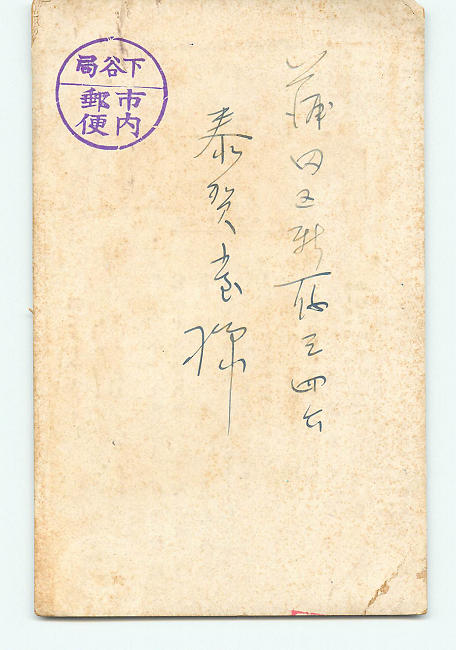 蒲田区新宿三四六
泰賀堂様
下谷局
市内
郵便